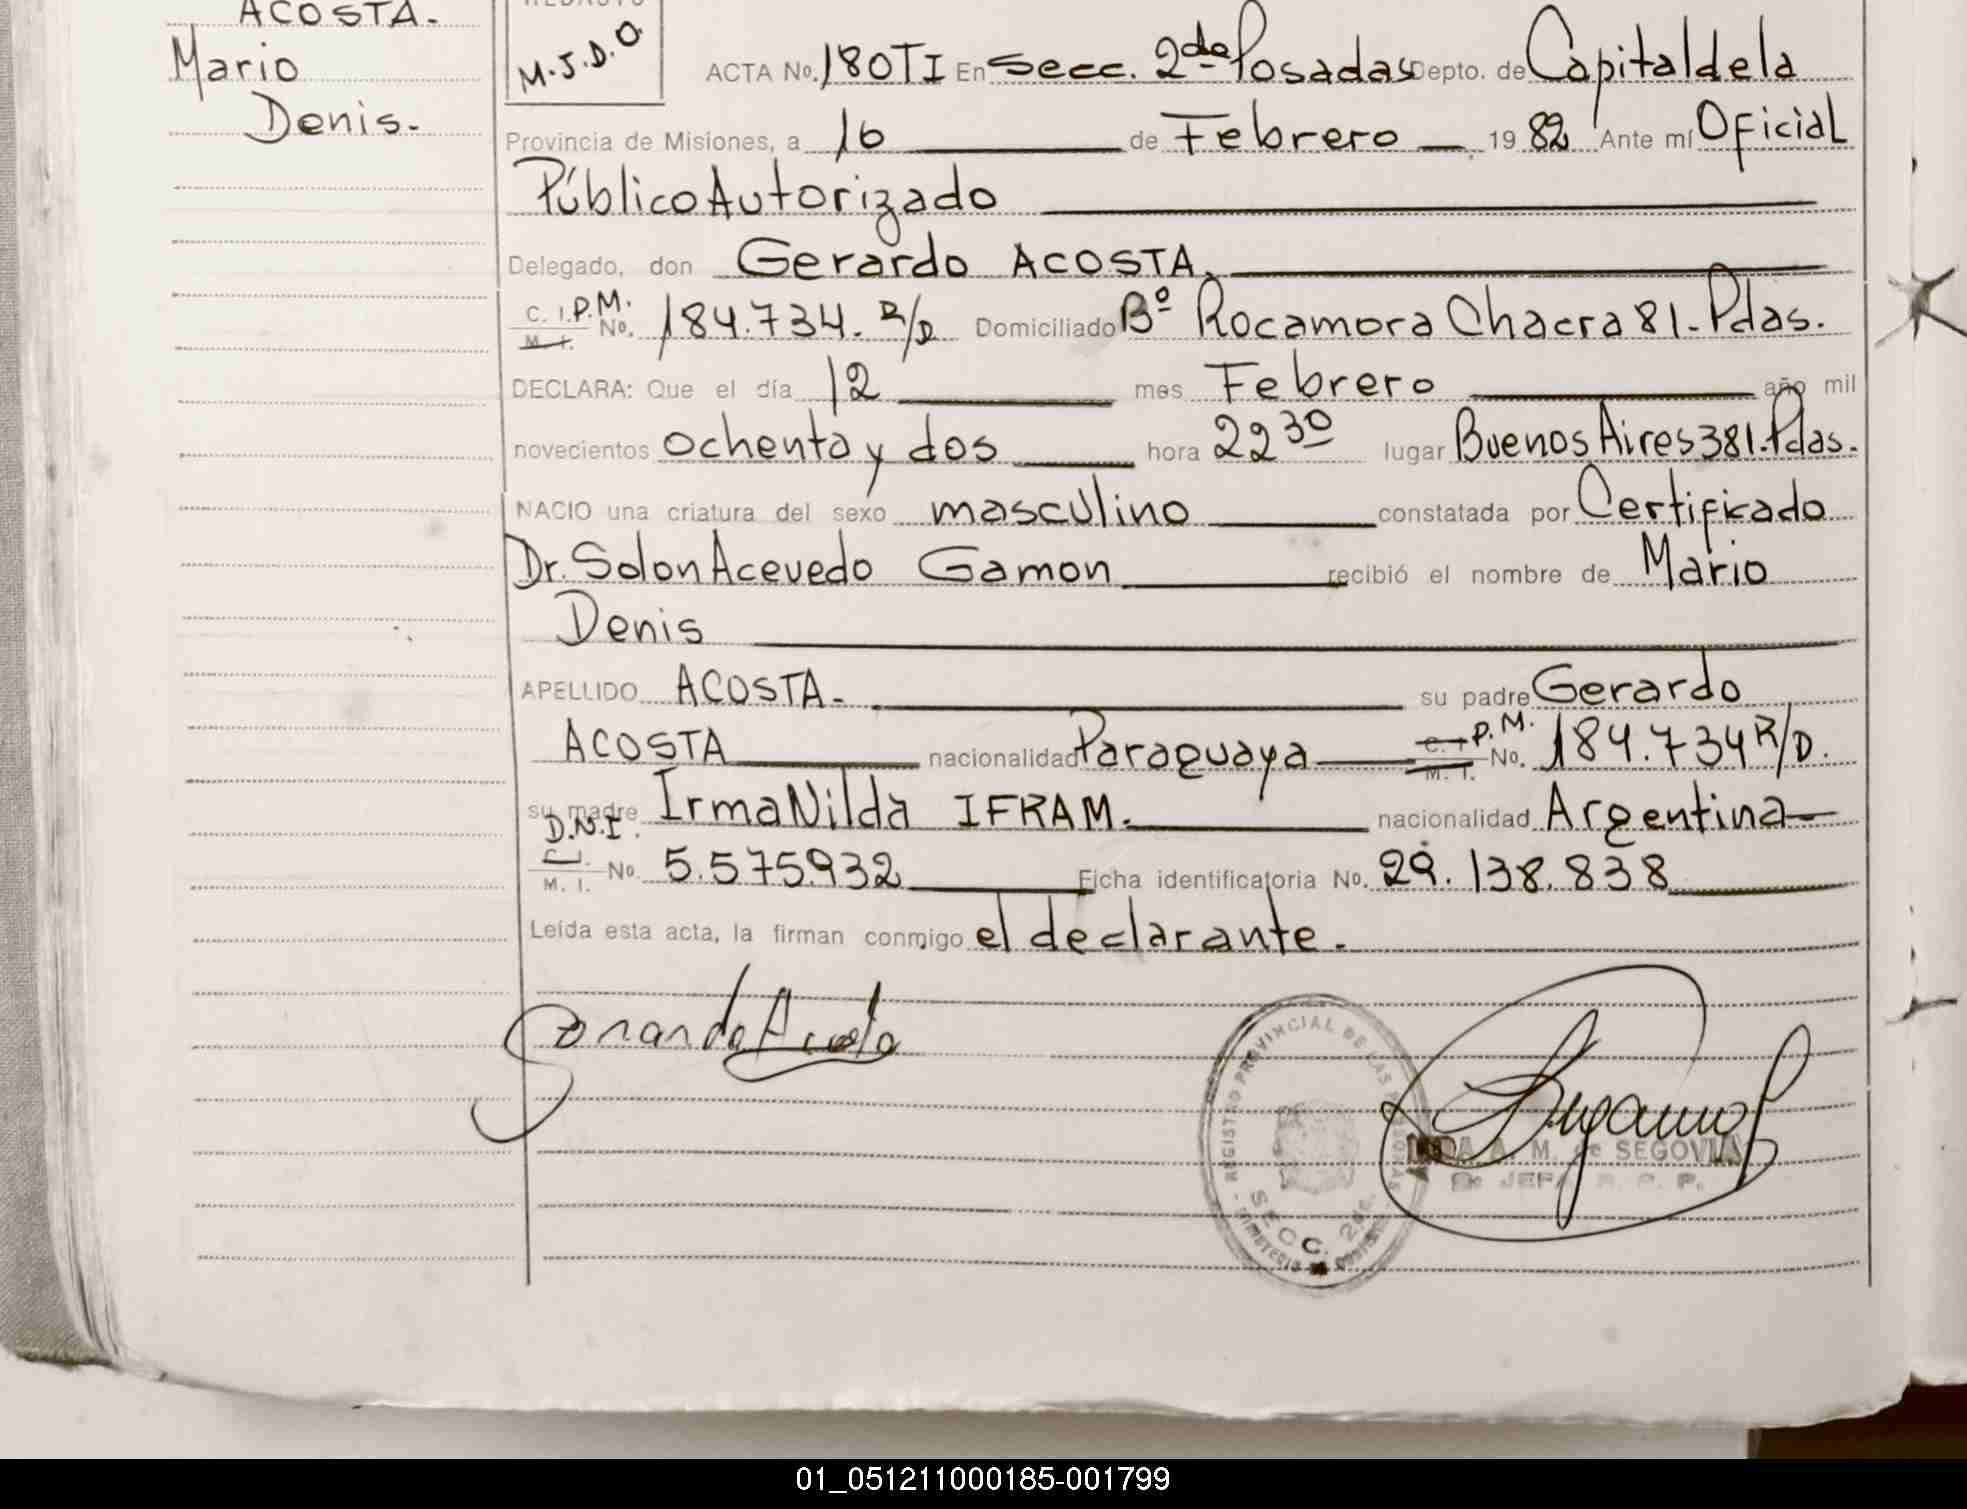 ACOSTA.
Mario
Denis.
M.J.D.O.
ACTA No. 180 TI En Secc. 2da Posadas Depto. de Capital de la
Provincia de Misiones, a 16 de Febrero 19 82 Ante mí Oficial
Público Autorizado
Delegado, don Gerardo ACOSTA,
C. I. P.M. M. I. No. 184.734. R/D Domiciliado Bº Rocamora Chacra 81. Pdas.
DECLARA: Que el día 12 mes Febrero año mil
novecientos ochenta y dos hora 22 30 lugar Buenos Aires 381. Pdas.
NACIO una criatura del sexo masculino constatada por Certificado
Dr. Solon Acevedo Gamon recibió el nombre de Mario
Denis
APELLIDO ACOSTA. su padre Gerardo
ACOSTA nacionalidad Paraguaya C. I. P.M. M. I. No. 184.734 R/D.
su madre Irma Nilda IFRAM. nacionalidad Argentina
D.N.I. C.I. M. I. No. 5.575.932 Ficha identificatoria No. 29.138.838
Leída esta acta, la firman conmigo el declarante.
REGISTRO PROVINCIAL DE LAS PERSONAS
SECC. 2da.
A. M. de SEGOVIA
JEFA R. C. P.
01_051211000185-001799